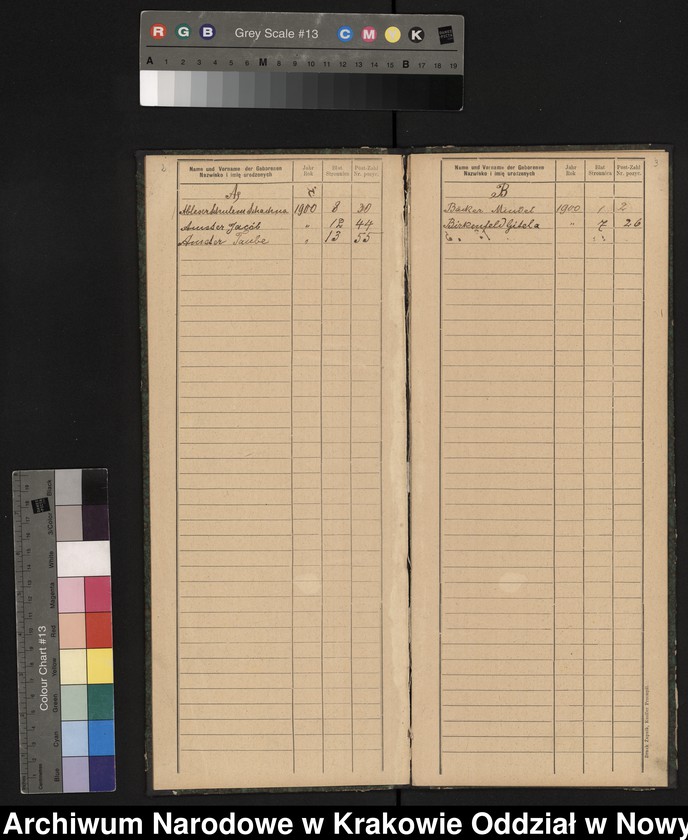 R G B Grey Scale #13 C M Y K
A 1 2 3 4 5 6 M 8 9 10 11 12 13 14 15 B 17 18 19
2
Name und Vorname der Geborenen
Nazwisko i imię urodzonych
Jahr
Rok
Blatt
Stronnica
Post-Zahl
Nr. pozyc.
A
1900 8 30
Amster Jacob " 12 44
Amster Taube " 13 55
3
Name und Vorname der Geborenen
Nazwisko i imię urodzonych
Jahr
Rok
Blatt
Stronnica
Post-Zahl
Nr. pozyc.
B
Bäcker Mendel 1900 1 2
Birkenfeld Gitela " 7 26
Colour Chart #13
Blue Cyan Green Yellow Red Magenta White 3/Color Black
Archiwum Narodowe w Krakowie Oddział w Nowy